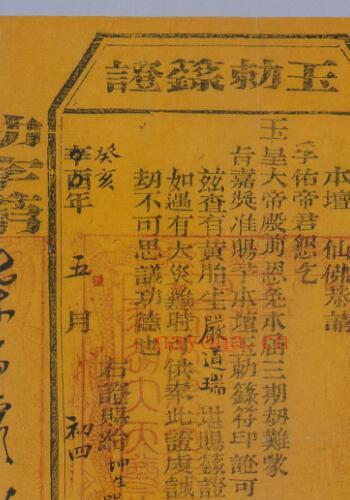 玉勅籙證
本壇 仙佛恭請
孚佑帝君恕乞
玉皇大帝殿前恩免本屆三期劫難蒙
旨嘉獎准賜予本壇玉勅籙符印證可
茲查有黃胎生嚴道瑞 堪賜籙證
如遇有大災難時可供奉此證虔誠
劫不可思議功德也
右證賜給 坤生
癸亥
辛酉年 五月 初四